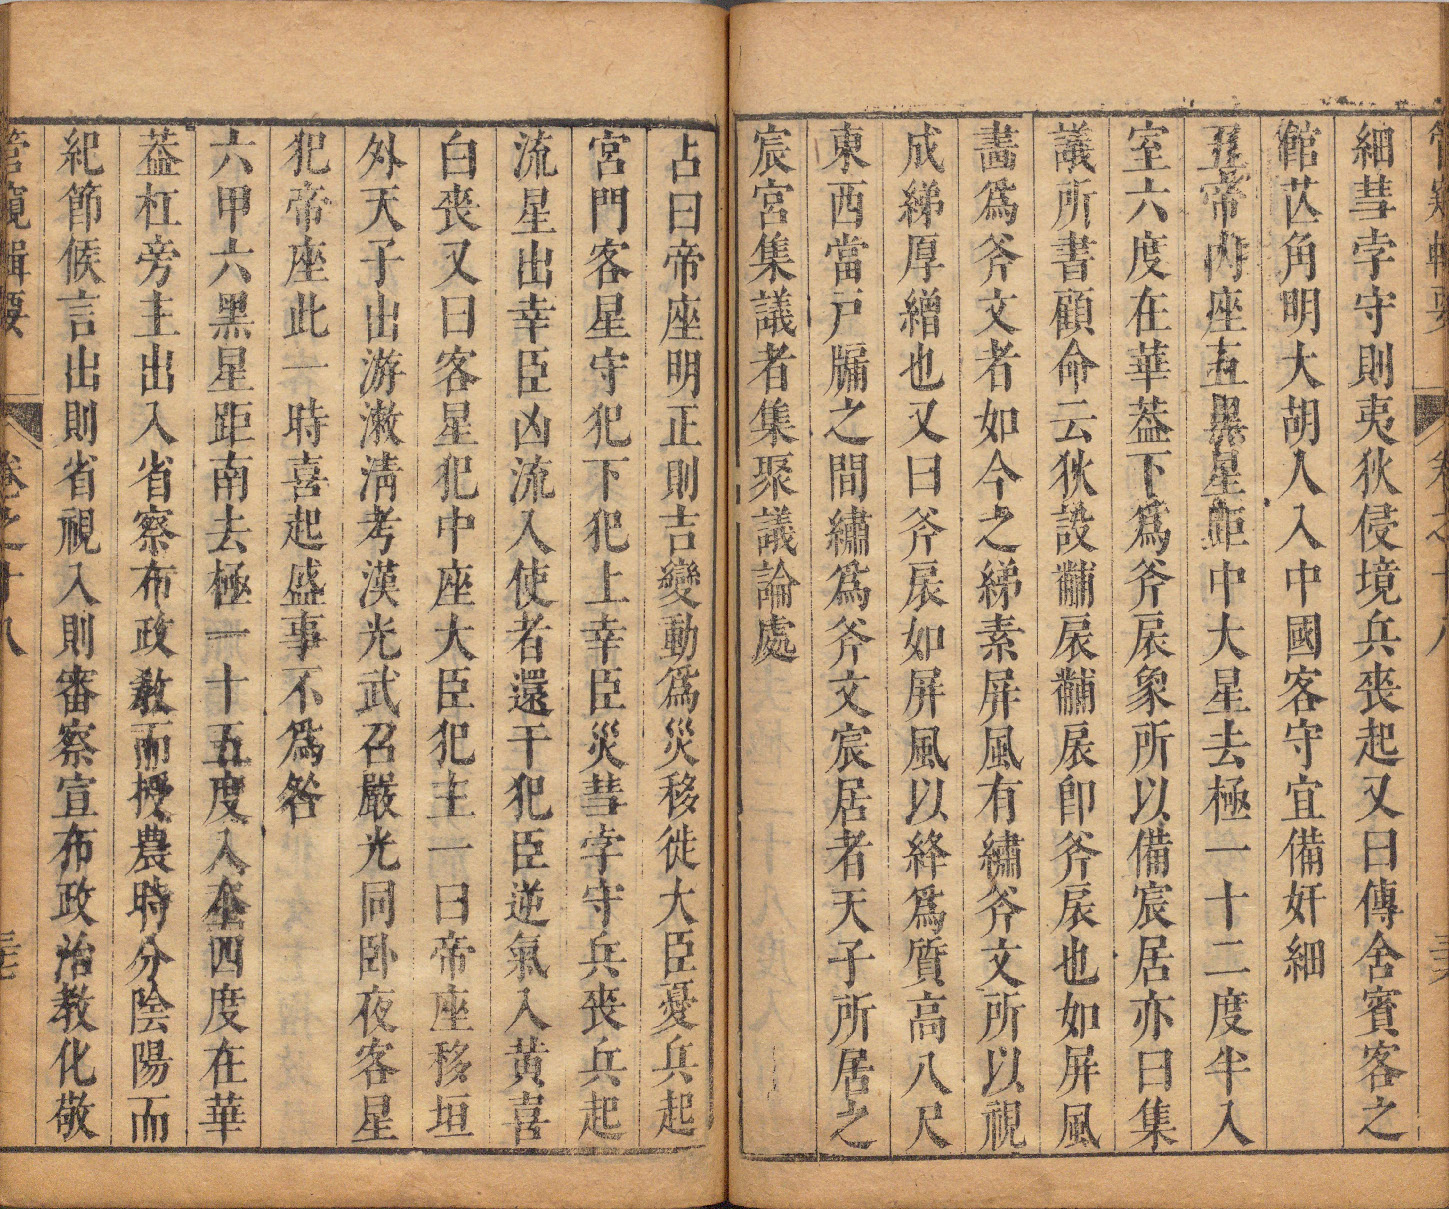 細彗孛守則夷狄侵境兵喪起又曰傳舍賓客之
館苡角明大胡人入中國客守宜備奸細
五帝內座五異星距中大星去極一十二度半入
室六度在華葢下為斧扆象所以備宸居亦曰集
議所書顧命云狄設黼扆黼扆卽斧扆也如屏風
畵為斧文者如今之綈素屏風有繡斧文所以視
成綈厚繒也又曰斧扆如屏風以絳為質高八尺
東西當戸牖之間繡為斧文宸居者天子所居之
宸宮集議者集聚議論處
占曰帝座明正則吉變動為災移徙大臣憂兵起
宮門客星守犯下犯上幸臣災彗孛守兵喪兵起
流星出幸臣凶流入使者還干犯臣逆氣入黄喜
白喪又曰客星犯中座大臣犯主一曰帝座移垣
外天子出游漖淸考漢光武召嚴光同卧夜客星
犯帝座此一時喜起盛事不為咎
六甲六黑星距南去極一十五度入奎四度在華
葢杠旁主出入省察布政敎而授農時分陰陽而
紀節候言出則省視入則審察宣布政治教化敬
管窺輯要
卷之十八
三七